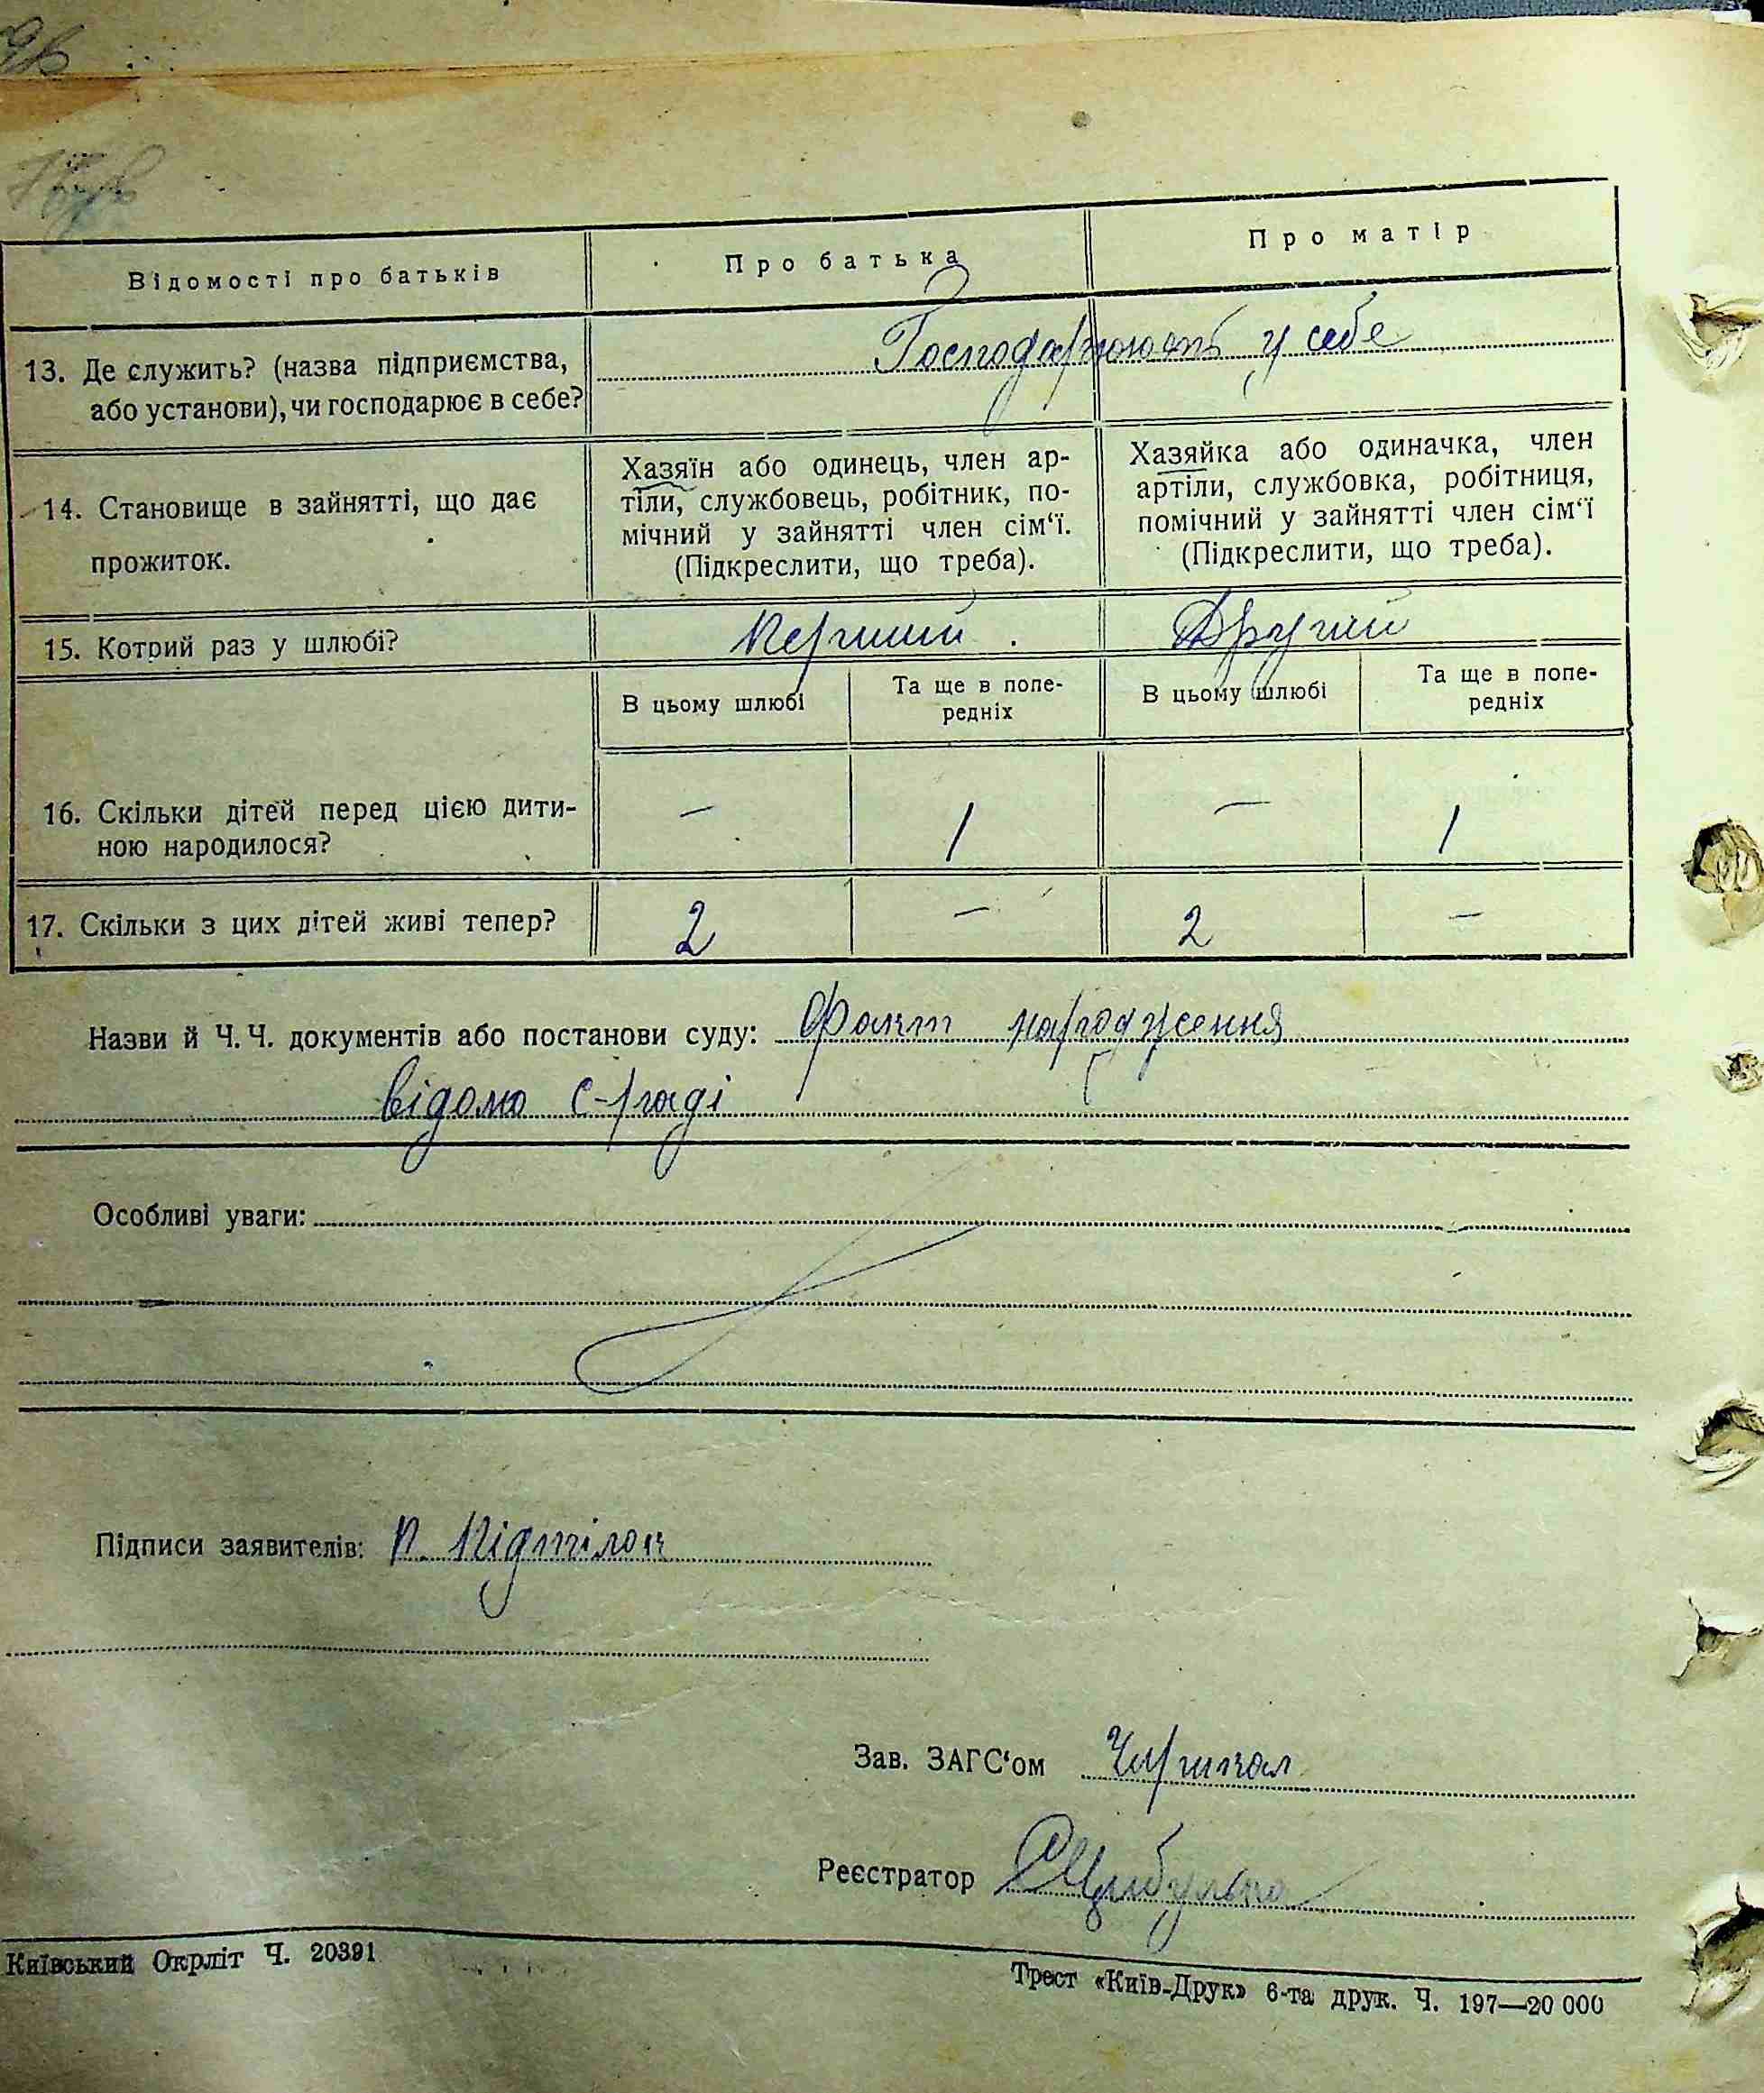 Відомості про батьків
Про батька
Про матір
13. Де служить? (назва підприємства,
або установи), чи господарює в себе?
Господарюють у себе
14. Становище в зайнятті, що дає
прожиток.
Хазяїн або одинець, член ар-
тіли, службовець, робітник, по-
мічний у зайнятті член сім‘ї.
(Підкреслити, що треба).
Хазяйка або одиначка, член
артіли, службовка, робітниця,
помічний у зайнятті член сім‘ї
(Підкреслити, що треба).
15. Котрий раз у шлюбі?
Перший.
Другий
В цьому шлюбі
Та ще в попе-
редніх
В цьому шлюбі
Та ще в попе-
редніх
16. Скільки дітей перед цією дити-
ною народилося?
—
1
—
1
17. Скільки з цих дітей живі тепер?
2
—
2
—
Назви й Ч. Ч. документів або постанови суду: Факт народження
відомо с-раді
Особливі уваги:
Підписи заявителів: П.
Зав. ЗАГС‘ом
Реєстратор Цибулько
Київський Окрліт Ч. 20391
Трест «Київ-Друк» 6-та друк. Ч. 197—20 000